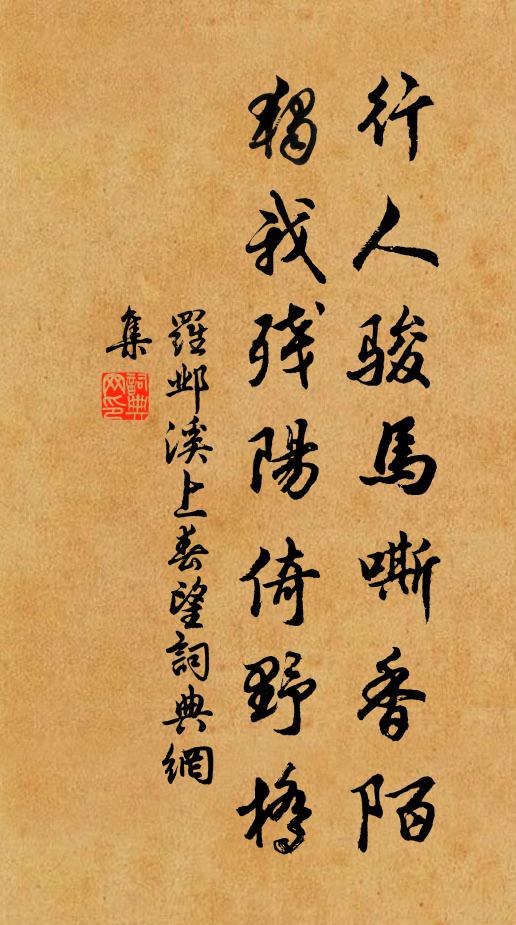 行人骏馬嘶香陌
獨我残陽倚野橋
羅邺溪上春望詞典網
集
詞典
网印